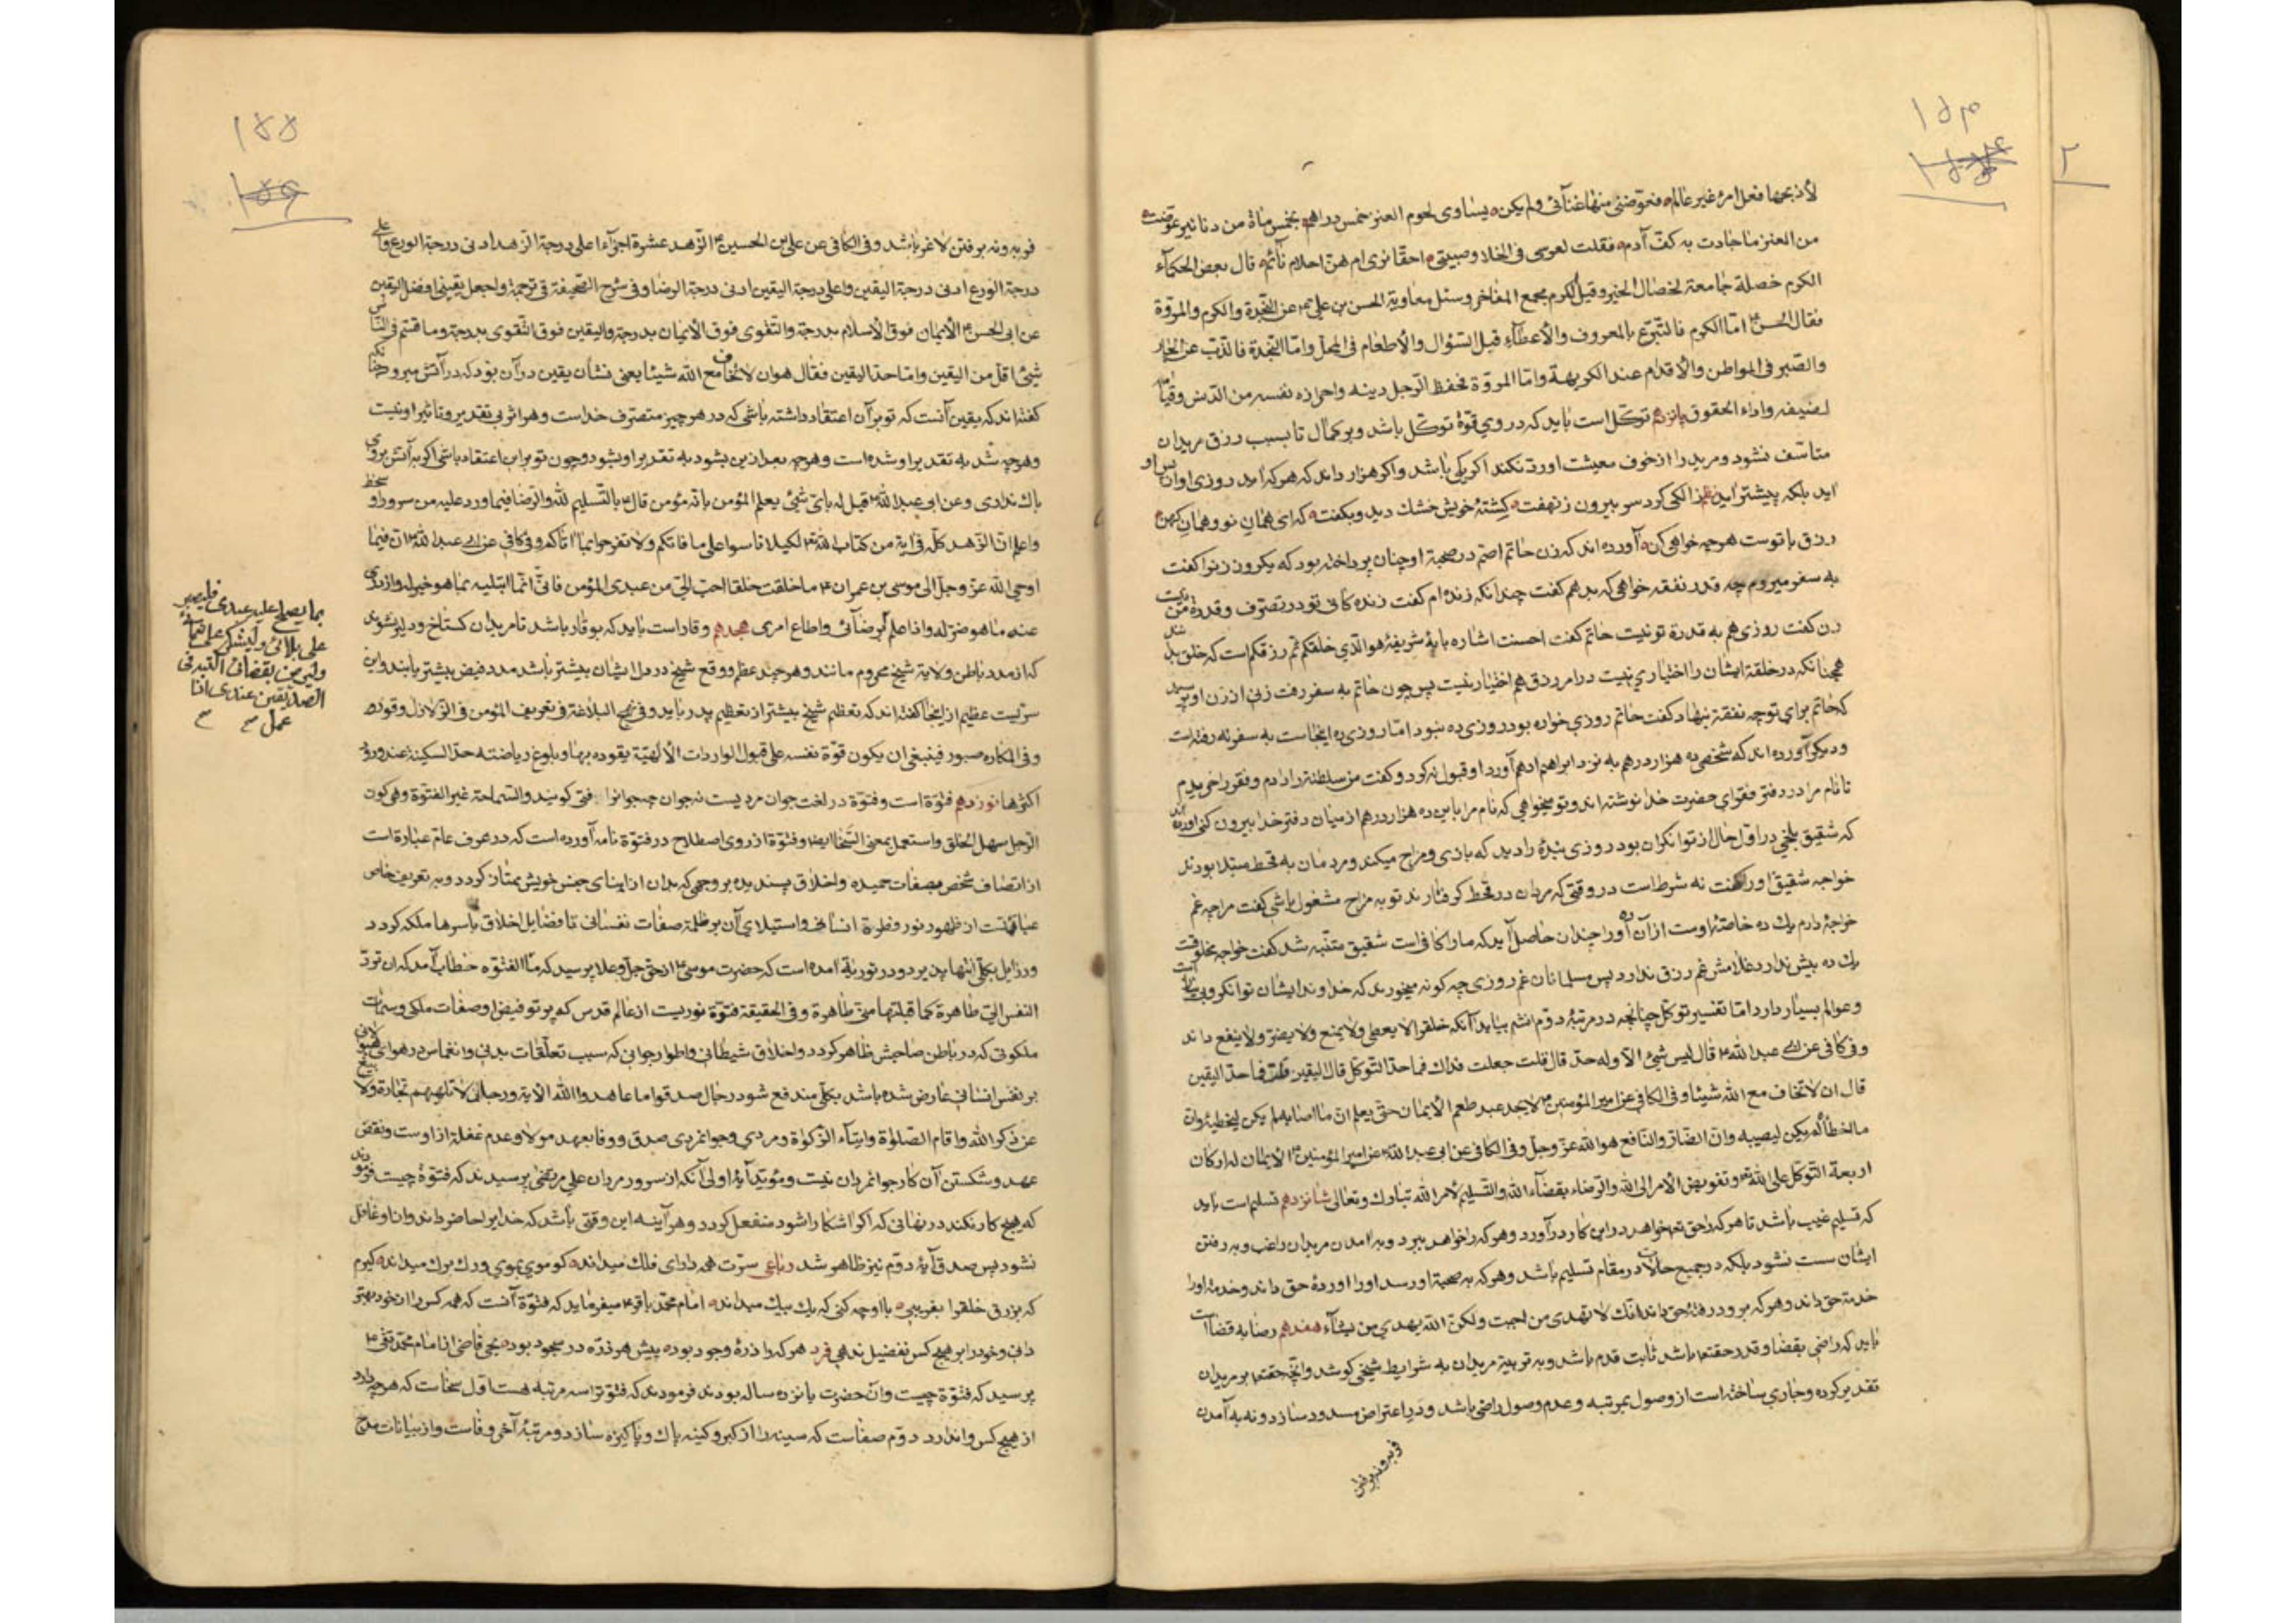 ۱۵۴
۲
لأذبحها فعل امرء غير عالم فعوضني منها غنائي ولم يكن يساوي لحوم العنز خمس دراهم بخمس مأة من دنانير عوضت
من العنز ما جادت به كف آدم فقلت لعرسي في الخلا وصبيتي احقا نرى ام هن احلام نائم قال بعض الحكماء
الكرم خصلة جامعة لخصال الخير وقيل الكرم مجمع المفاخر وسئل معاوية الحسن بن علي عن النجدة والكرم والمروة
فقال الحسن اما الكرم فالتبرع بالمعروف والأعطاء قبل السؤال والأطعام في المحل واما النجدة فالذب عن الجار
والصبر في المواطن والأقدام عند الكريهة واما المروة فحفظ الرجل دينه واحرازه نفسه من الدنس وقيامه
لضيفه واداء الحقوق پانزدهم توكل است بايد كه در وي قوة توكل باشد وبر كمال تا بسبب رزق مريدان
متأسف نشود ومريد را از خوف معيشت اورد نكند اگر يكي باشد واگر هزار داند كه هر كه آمد روزي او از پس او
آيد بلكه پيشتر آيد نظم زالكى كرد سر بيرون ز نهفت كشتهٔ خويش خشك ديد وبگفت كه اى همان نو وهمان كهن
رزق با توست هرچه خواهى كن آورده اند كه زن حاتم اصم در صحبة او چنان پرداخته بود كه يكروز زنرا گفت
به سفر ميروم چه قدر نفقه خواهى كه بدهم گفت چندانكه زنده ام گفت زنده كانى تو در تصرف وقدرة من نيست
زن گفت روزى هم به قدرة تو نيست حاتم گفت احسنت اشاره بايهٔ شريفهٔ هو الذي خلقكم ثم رزقكم است كه خلق
همچنانكه در خلقة ايشان را اختياري نيست در امر رزق هم اختيار نيست پس چون حاتم به سفر رفت زنى از زن او پرسيد
كه حاتم براي تو چه نفقة بنهاد گفت حاتم روزى خواره بود روزى ده نبود اما روزى ده اينجاست به سفر نه رفته است
وديگر آورده اند كه شخصى ده هزار درهم به نزد ابراهيم ادهم آورد او قبول نه كرد وگفت من سلطنة را دادم وفقر را خريدم
تا نام مرا در دفتر فقراي حضرت خدا نوشته اند وتو ميخواهى كه نام مرا باين ده هزار درهم از ميان دفتر خدا بيرون كنى آورده اند
كه شقيق بلخي در اول حال از توانگران بود روزى بندهٔ را ديد كه بازى ومزاح ميكند ومردمان به قحط مبتلا بودند
خواجه شقيق اورا گفت نه شرط است در وقتى كه مردمان در قحط گرفتارند تو به مزاح مشغول باشى گفت مرا چه غم
خواجهٔ دارم يك ده خاصهٔ اوست از آن ده اورا چندان حاصل آيد كه مارا كافى است شقيق متنبه شد گفت خواجه مخلوقيست
يك ده بيش ندارد غلامش غم رزق ندارد پس مسلمانان غم روزى چه گونه ميخورند كه خداوند ايشان توانگر وبى نياز است
وعوالم بسيار دارد اما تفسير توكل چنانچه در مرتبهٔ دوم بيايد آنكه خلقرا لا يعطى ولا يمنع ولا يضر ولا ينفع داند
وفي كافى عن ابي عبد الله قال ليس شئ الا وله حد قال قلت جعلت فداك فما حد التوكل قال اليقين قلت فما حد اليقين
قال ان لا تخاف مع الله شيئا وفي الكافي عن امير المؤمنين لا يجد عبد طعم الأيمان حتى يعلم ان ما اصابه لم يكن ليخطئه وان
ما اخطأه لم يكن ليصيبه وان الضار والنافع هو الله عز وجل وفي الكافي عن ابي عبد الله عن امير المؤمنين الأيمان له اركان
اربعة التوكل على الله وتفويض الأمر الى الله والرضاء بقضاء الله والتسليم لأمر الله تبارك وتعالى شانزدهم تسليم است بايد
كه تسليم غيب باشد تا هر كه را حق تع خواهد در اين كار درآورد وهر كه را خواهد ببرد وبه آمدن مريدان راغب وبه رفتن
ايشان سست نشود بلكه در جميع حالات در مقام تسليم باشد وهر كه به صحبة او رسد اورا آوردهٔ حق داند وخدمة اورا
خدمة حق داند وهر كه برود رفتهٔ حق داند انك لا تهدى من احببت ولكن الله يهدي من يشاء هفدهم رضا به قضا است
بايد كه راضى بقضا وقدر حقتعا باشد ثابت قدم باشد وبه تربية مريدان به شرايط شيخى كوشد وانچه حقتعا بر مريدان
تقدير كرده وجاري ساخته است از وصول بمرتبه وعدم وصول راضى باشد ودر اعتراض مسدود سازد ونه به آمدن
فربه ونه برفتن
۱۵۵
فربه ونه بر رفتن لاغر باشد وفي الكافي عن علي بن الحسين الزهد عشرة اجزاء اعلى درجة الزهد ادنى درجة الورع واعلى
درجة الورع ادنى درجة اليقين واعلى درجة اليقين ادنى درجة الرضا وفي شرح الصحيفة في ترجمة واجعل يقيني افضل اليقين
عن ابى الحسن الأيمان فوق الأسلام بدرجة والتقوى فوق الأيمان بدرجة واليقين فوق التقوى بدرجة وما قسم في الناس
شئ اقل من اليقين واما حد اليقين فقال هو ان لا تخاف مع الله شيئا يعنى نشان يقين در آن بود كه در آتش ميرود چنانكه
گفته اند كه يقين آنست كه تو بر آن اعتقاد داشته باشى كه در هر چيز متصرف خداست وهر اثر بى تقدير وتأثير او نيست
وهرچه شد به تقدير او شده است وهرچه بعد ازين بشود به تقدير او بشود وچون تو براين اعتقاد باشى اگر به آتش بروى
باك ندارى وعن ابي عبد الله قيل له باى شئ يعلم المؤمن بانه مؤمن قال بالتسليم لله والرضا فيما ورد عليه من سرور او سخط
واعلم ان الزهد كله في اية من كتاب الله لكيلا تأسوا على ما فاتكم ولا تفرحوا بما اتاكم وفي كافي عن ابي عبد الله ان فيما
اوحى الله عز وجل الى موسى بن عمران ما خلقت خلقا احب الي من عبدى المؤمن فانى انما ابتليه بما هو خير له وازوى
عنه ما هو شر له وانا اعلم
برضائى واطاع امرى هجدهم وقار است بايد كه بوقار باشد تا مريدان گستاخ ودلير نشوند
كه از مدد باطن ولاية شيخ محروم مانند وهر چند عظم ووقع شيخ در دل ايشان بيشتر باشد مدد فيض بيشتر يابند واين
سريست عظيم از اينجا گفته اند كه تعظيم شيخ بيشتر از تعظيم پدر بايد وفي نهج البلاغة في تعريف المؤمن في الزلازل وقور
وفي المكاره صبور فينبغي ان يكون قوة نفسه على قبول الواردات الألهية يقوده بها وبلوغ رياضته حد السكينة عند ورود
اكثرها نوزدهم فتوة است وفتوة در لغت جوان مرديست نه جوان چه جوانرا فتى گويند والسماحة غير الفتوة وهى كون
الرجل سهل الخلق واستعمل بمعنى السخا ايضا وفتوة از روى اصطلاح در فتوة نامه آورده است كه در عرف عام عبارة است
از اتصاف شخص بصفات حميده واخلاق پسنديده بر وجهى كه بدان از ابناى جنس خويش ممتاز گردد وبه تعريف خاص
عبارتست از ظهور نور وفطرة انسانى واستيلاي آن بر ظلمة صفات نفسانى تا فضايل اخلاق باسرها ملكه گردد
ورذايل بكلى انتها پذيرد ودر توريه آمده است كه حضرت موسى از حق جل وعلا پرسيد كه ما الفتوه خطاب آمد كه ان ترد
النفس الي طاهرة كما قبلتها مني طاهرة وفي الحقيقة فتوة نوريست از عالم قدس كه پرتو فيض او صفات ملكى وسمات
ملكوتى كه در باطن صاحبش ظاهر گردد واخلاق شيطانى واطوار جوانى كه سبب تعلقات بدنى وانغماس در هواى
بر نفس انسانى عارض شده باشد بكلى مندفع شود رجال صدقوا ما عاهدوا الله الاية ورجال لا تلهيهم تجارة ولا بيع
عن ذكر الله واقام الصلوة وايتاء الزكوة ومردي وجوانمردى صدق ووفا بعهد مولا وعدم غفلة از اوست ونقض
عهد وشكستن آن كار جوانمردان نيست ومؤيد آيهٔ اولى آنكه از سرور مردان على مرتضى پرسيدند كه فتوة چيست فرمودند
كه هيچ كار نكند در نهانى كه اگر آشكارا شود منفعل گردد وهر آينه اين وقتى باشد كه خدايرا حاضر داند وازو غافل
نشود پس صدق آيهٔ دوم نيز ظاهر شد رباعى سرت همه داراى فلك ميداند كو موي بموي ورگ برگ ميداند گيرم
كه بزرق خلقرا بفريبى با او چه كنى كه يك بيك ميداند امام محمد باقر ميفرمايد كه فتوة آنست كه همه كس را از خود بهتر
دانى وخود را بر هيچ كس تفضيل ندهى فرد هر كه را ذرهٔ وجود بود پيش هر ذره در سجود بود يحيى قاضى از امام محمد تقى
پرسيد كه فتوة چيست وان حضرت پانزده ساله بودند فرمودند كه فتوة را سه مرتبه هست اول سخاست كه هرچه دارد
از هيچ كس وا ندارد دوم صفاست كه سينه را از كبر وكينه پاك وپاكيزه سازد ومرتبهٔ آخر وفاست واز بيانات
بما يصلح عليه عبدى فليصبر
على بلائى وليشكر على نعمائى
وليرض بقضائى اكتبه في
الصديقين عندى اذا
عمل